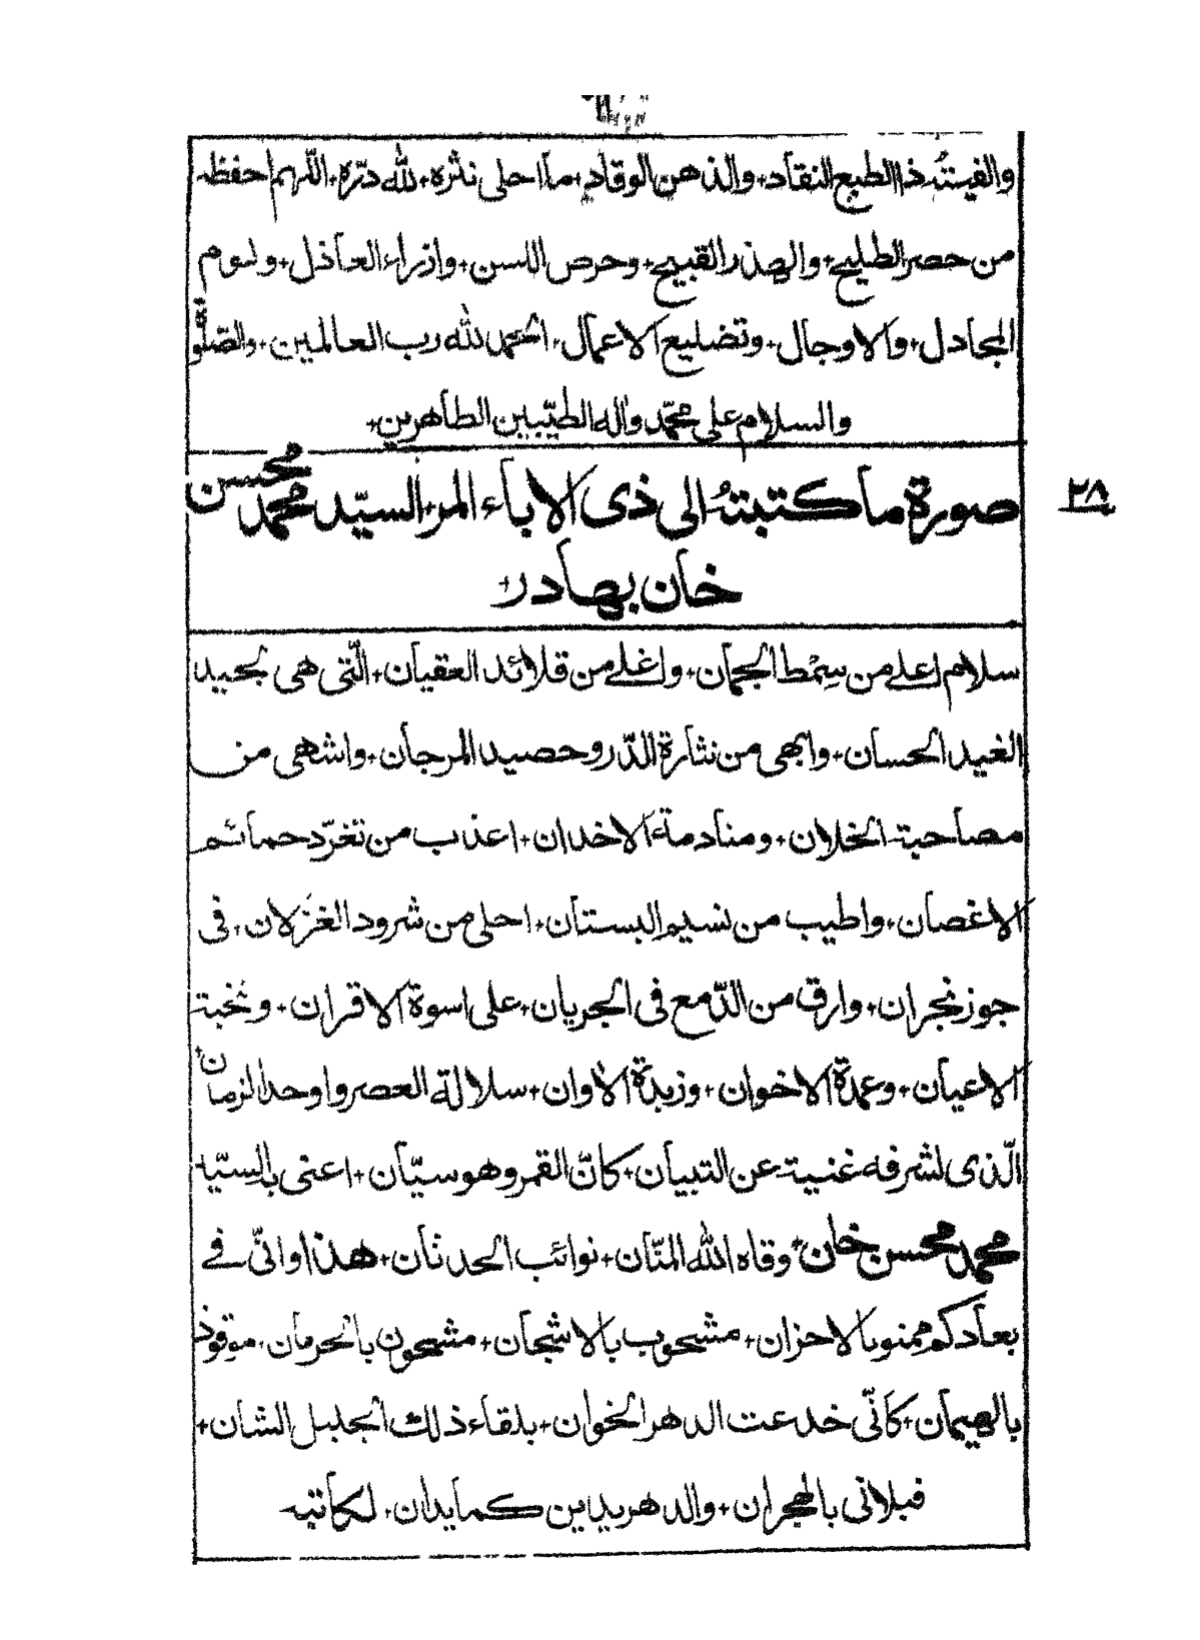 والفيته ذا الطبع النقاد + والذهن الوقاد + ما احلى نثره + لله درّه + اللّهم احفظه
من حصر الطليح + والهذر القبيح + وحرص اللسن + وازراء العاذل + ولوم
المجادل + والاوجال + وتضليع الاعمال + الحمد لله رب العالمين + والصّلوة
والسلام على محمّد واله الطيّبين الطاهرين +
صورة ما كتبتهُ الى ذى الاباء المر السيّد محمد محسن
٢٨
خان بهادر +
سلام اعلے من سِمْط الجمان + واغلے من قلائد العقيان + الّتى هى لجيد
الغيد الحسان + وابهى من نثارة الدّر وحصيد المرجان + واشهى من
مصاحبة الخلان + ومنادمة الاخدان + اعذب من تغرّد حمائم
الاغصان + واطيب من نسيم البستان + احلى من شرود الغزلان + فى
جوز نجران + وارق من الدّمع فى الجريان + على اسوة الاقران + ونخبة
الاعيان + وعمدة الاخوان + وزبدة الاوان + سلالة العصر واوحد الزمان +
الّذى لشرفه غنية عن التبيان + كانّ القمر وهو سيّان + اعنى بالسيّد
محمد محسن خان + وقاه الله المنّان + نوائب الحدثان + هذا وانّى فے
بعادكم ممنو بالاحزان + مشحوب بالاشجان + مشحون بالحرمان + موقوذ
بالهيمان + كانّى خدعت الدهر الخوان + بلقاء ذلك الجليل الشان +
فبلانى بالهجران + والدهر يدين كما يدان + لكاتبه